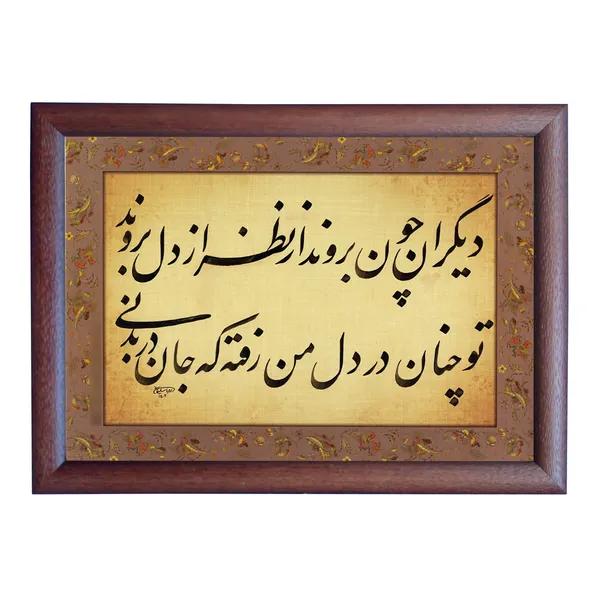 دیگران چون بروند از نظر از دل بروند
تو چنان در دل من رفته که جان در بدنی